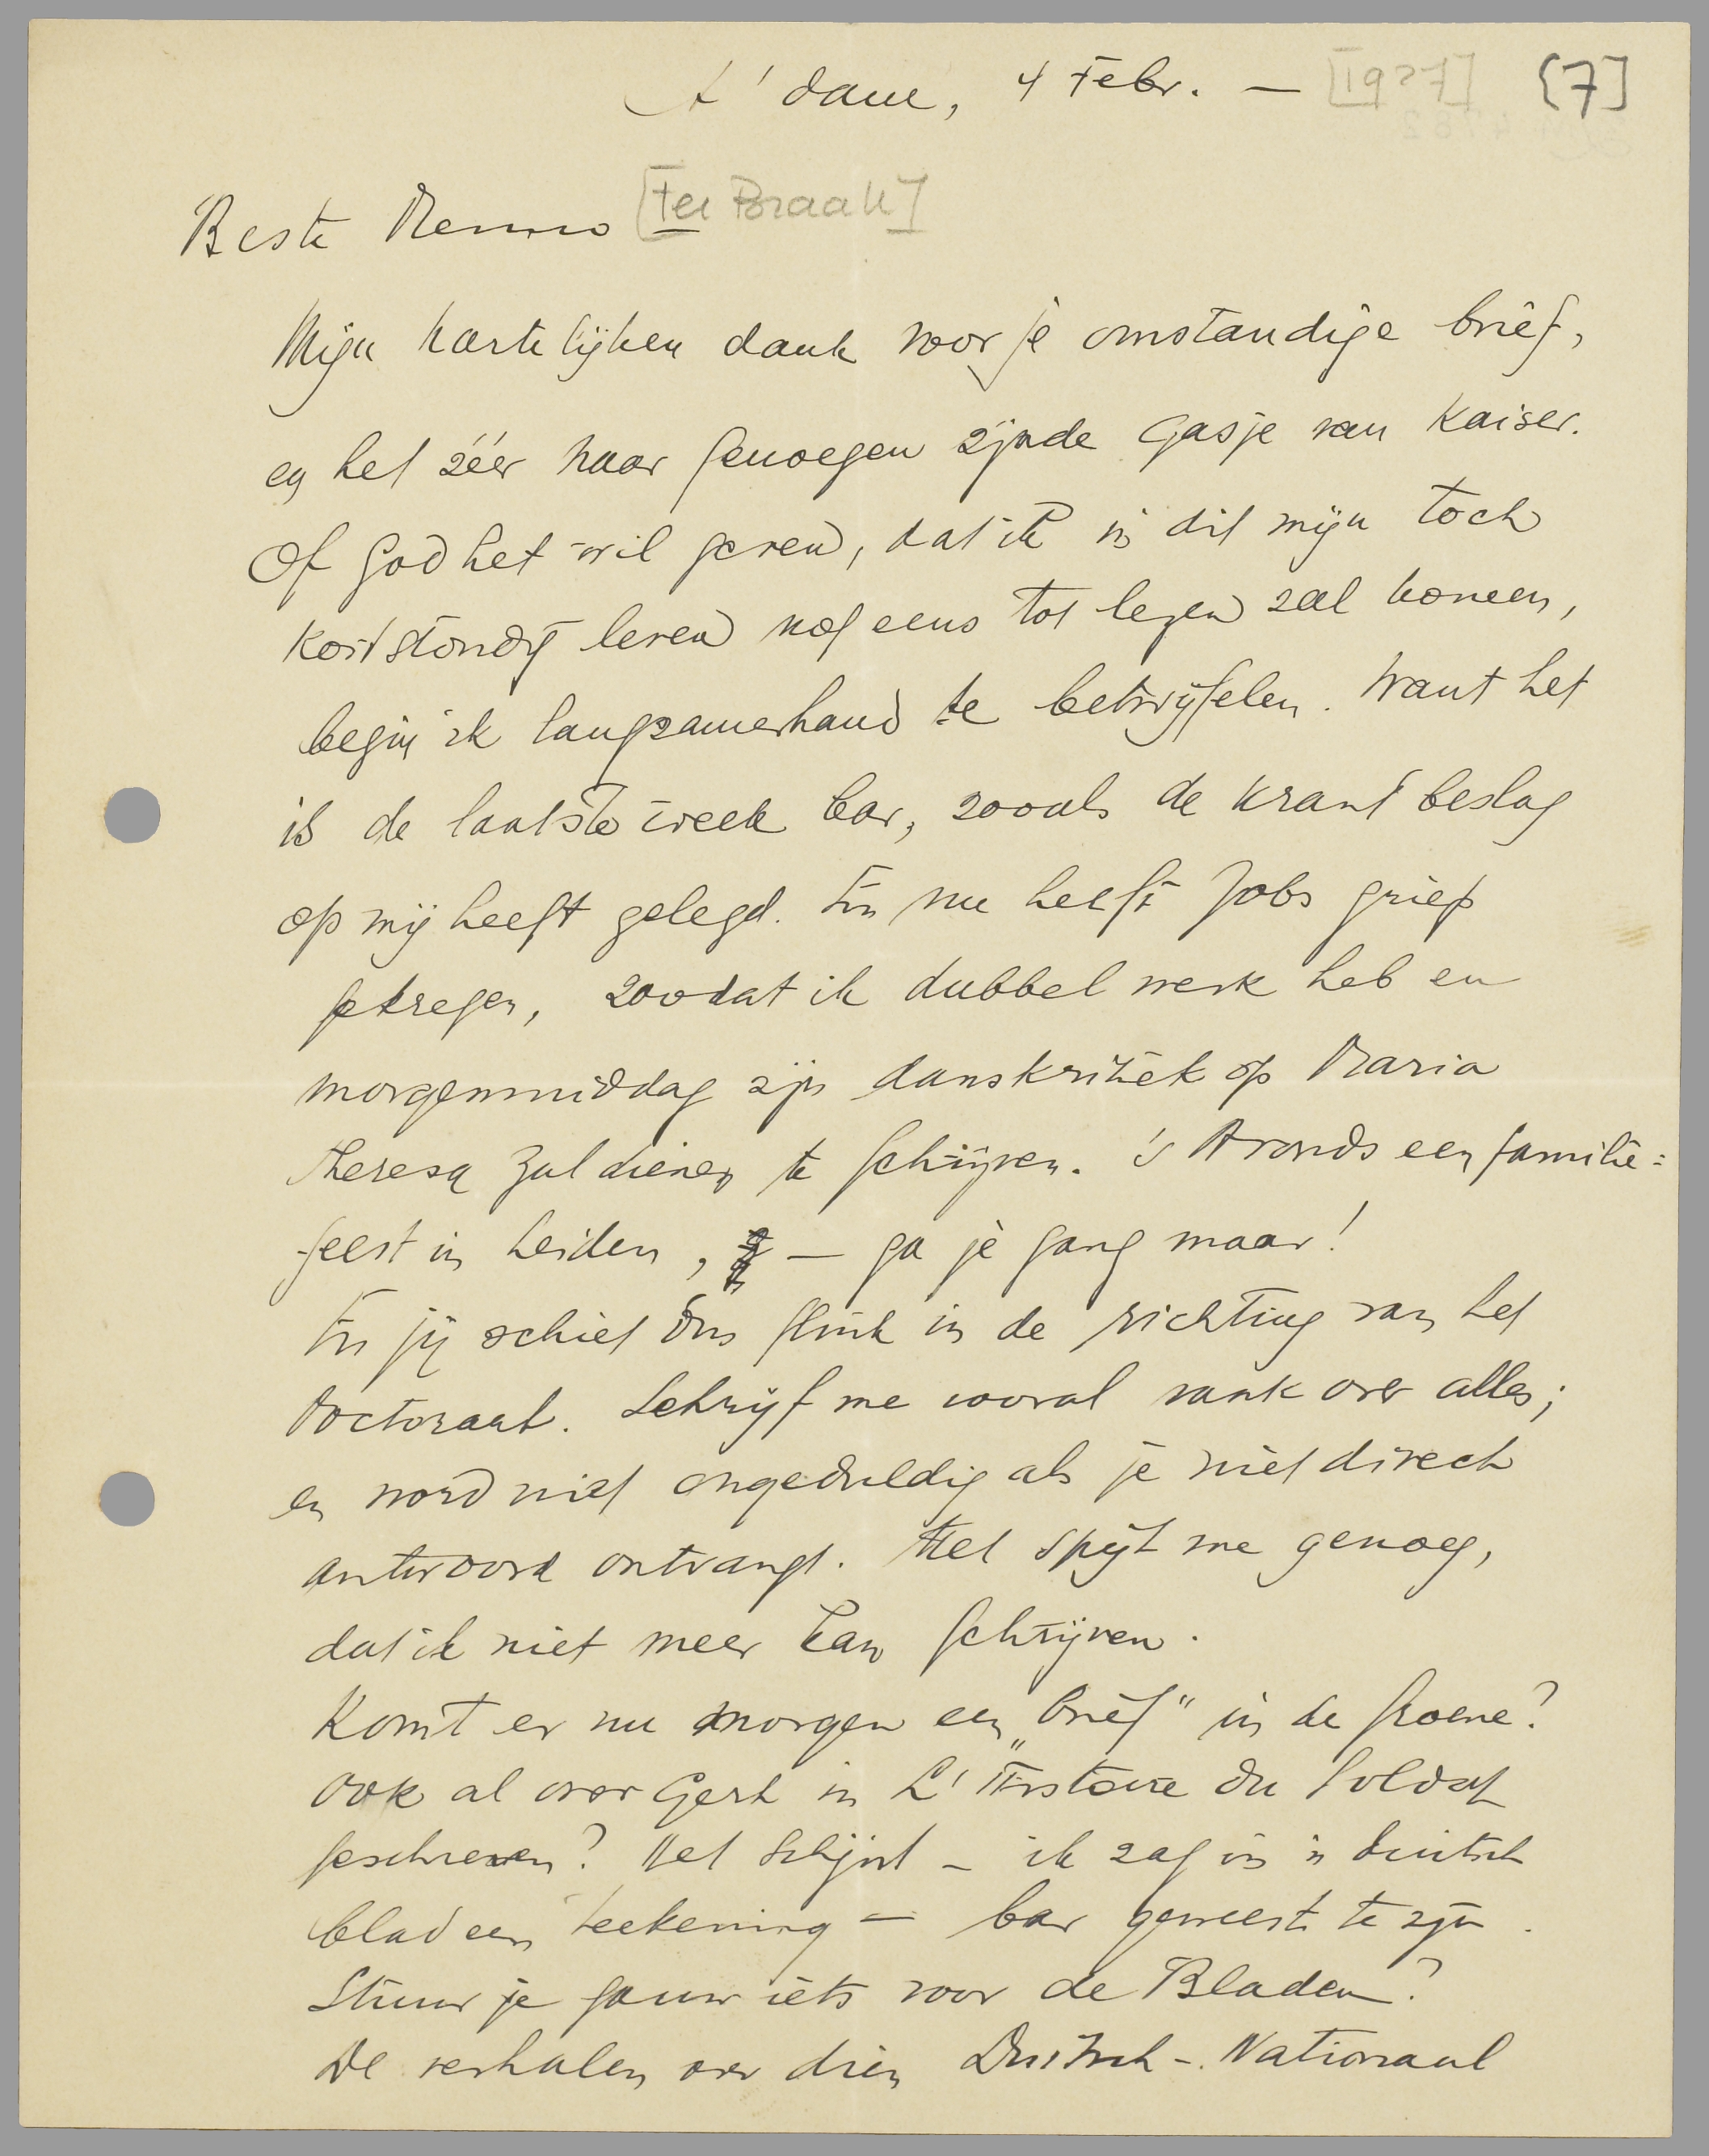 A'dam, 4 Febr. — [1927] [7]
Beste Menno [ter Braak]
Mijn hartelijken dank voor je omstandige brief,
en het zéér naar genoegen zijnde Gasje van Kaiser.
Of God het wil geven, dat ik in dit mijn toch
kortstondig leven nog eens tot lezen zal komen,
begin ik langzamerhand te betwijfelen. Want het
is de laatste week bar, zooals de krant beslag
op mij heeft gelegd. En nu heeft Jobs griep
gekregen, zoodat ik dubbel werk heb en
morgenmiddag zijn danskritiek op Maria
Theresa zal dienen te schrijven. 's Avonds een familie=
feest in Leiden, — ga je gang maar!
En jij schiet dus flink in de richting van het
doctoraat. Schrijf me vooral vaak over alles;
en word niet ongeduldig als je niet direct
antwoord ontvangt. Het spijt me genoeg,
dat ik niet meer kan schrijven.
Komt er nu morgen een „brief" in de Groene?
Ook al over Gert in L'Histoire du Soldat
geschreven? Het schijnt – ik zag in 'n duitsch
blad een teekening – bar geweest te zijn.
Stuur je gauw iets voor de Bladen?
De verhalen over dien Duitsch-Nationaal